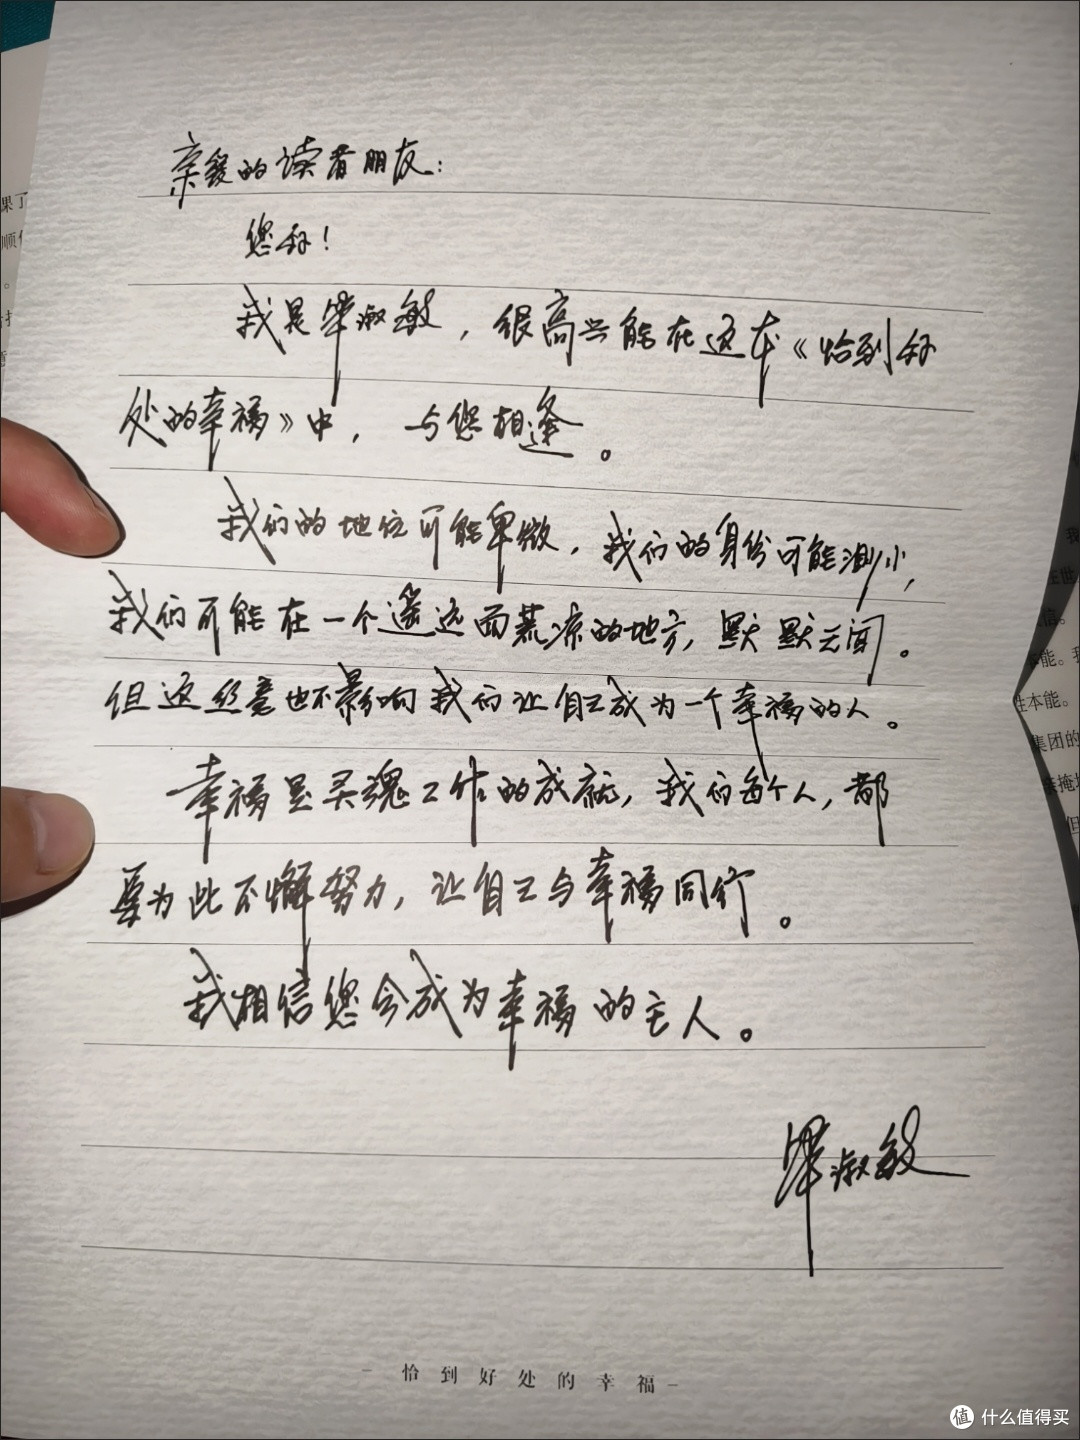 亲爱的读者朋友：
您好！
我是毕淑敏，很高兴能在这本《恰到好
处的幸福》中，与您相逢。
我们的地位可能卑微，我们的身份可能渺小，
我们可能在一个遥远而荒凉的地方，默默无闻。
但这丝毫也不影响我们让自己成为一个幸福的人。
幸福是灵魂工作的成就，我们每个人，都
要为此不懈努力，让自己与幸福同行。
我相信您会成为幸福的主人。
毕淑敏
- 恰到好处的幸福 -
果了
顺
能。我
性本能。
集团的
但
值 什么值得买